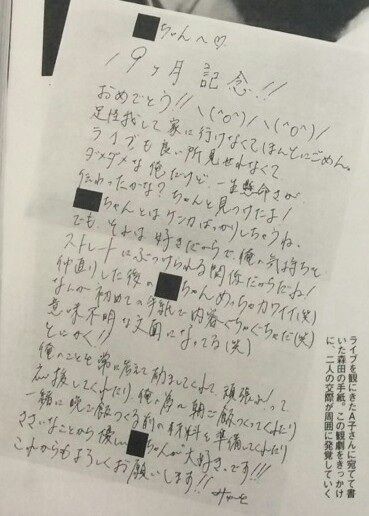 ■ちゃんへ♡
19ヶ月記念!!
おめでとう!! \(^o^)/ \(^o^)/
足怪我して家に行けなくてほんとにごめん。
ライブも良い所見せれなくて
ダメダメな俺だけど、一生懸命さが
伝わったかな?ちゃんと見つけたよ!
■ちゃんとはケンカばっかりしちゃうね、
でも、それは好きだからで、俺の気持ちを
ストレートにぶつけられる関係だからだね!
仲直りした後の■ちゃんめっちゃカワイイ(笑)
なんか初めての手紙で内容ぐちゃぐちゃだ(笑)
意味不明な文面になってる(笑)
とにかく!!
俺のことを常に考えて動いてくれて、頑張るって
応援してくれたり、俺の為に朝ご飯つくってくれたり
一緒に晩ご飯つくる前の材料を準備してくれたり
ささいなことから優しい■ちゃんが大好きです!!!
これからもよろしくお願いします!!
ライブを観にきたA子さんに宛てて書
いた森田の手紙。この観劇をきっかけ
に、二人の交際が周囲に発覚していく